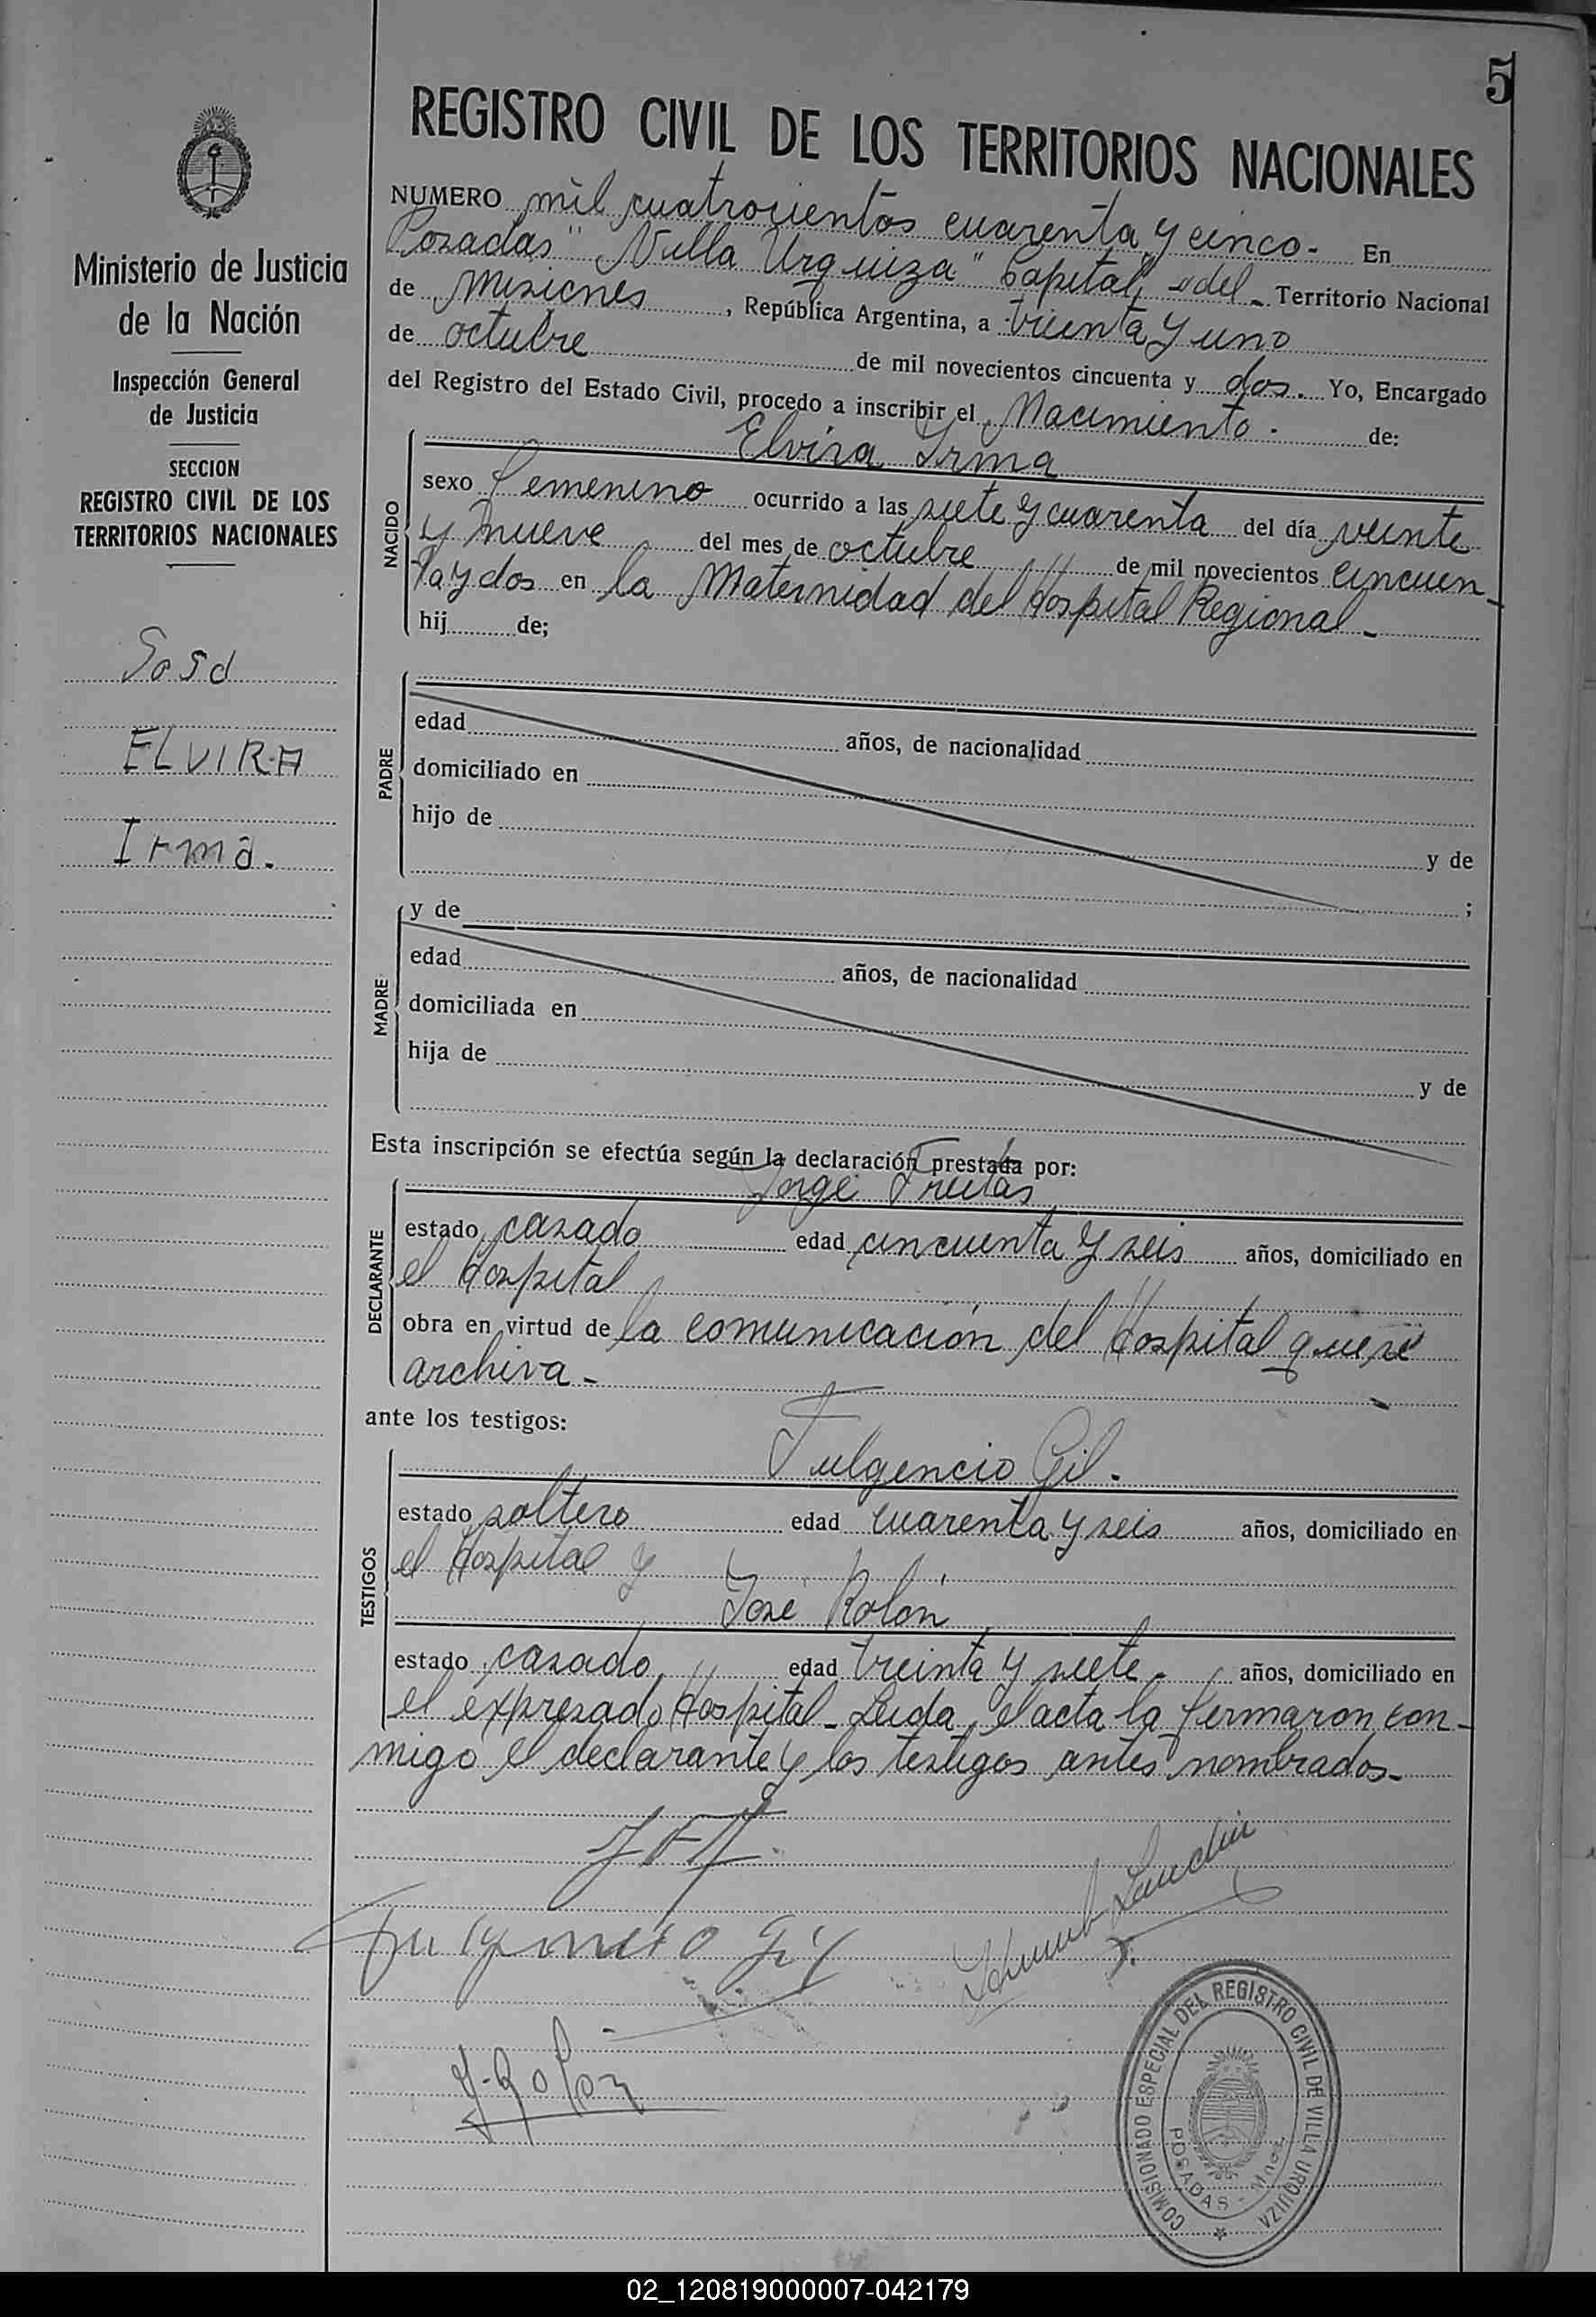 5
REGISTRO CIVIL DE LOS TERRITORIOS NACIONALES
Ministerio de Justicia
de la Nación
Inspección General
de Justicia
SECCION
REGISTRO CIVIL DE LOS
TERRITORIOS NACIONALES
Sosa
ELVIRA
Irma.
NUMERO mil cuatrocientos cuarenta y cinco- En
Posadas "Villa Urquiza" Capital del - Territorio Nacional
de Misiones, República Argentina, a treinta y uno
de octubre de mil novecientos cincuenta y dos. Yo, Encargado
del Registro del Estado Civil, procedo a inscribir el Nacimiento. de:
Elvira Irma
NACIDO
sexo femenino ocurrido a las siete y cuarenta del día veinte
y nueve del mes de octubre de mil novecientos cincuen-
ta y dos en la Maternidad del Hospital Regional-
hij de;
PADRE
edad años, de nacionalidad
domiciliado en
hijo de
y de
;
MADRE
y de
edad años, de nacionalidad
domiciliada en
hija de
y de
Esta inscripción se efectúa según la declaración prestada por:
Jorge Freitas
DECLARANTE
estado casado edad cincuenta y seis años, domiciliado en
el Hospital
obra en virtud de la comunicación del Hospital que se
archiva-
ante los testigos:
Fulgencio Gil.
TESTIGOS
estado soltero edad cuarenta y seis años, domiciliado en
el Hospital y
José Rolón
estado casado, edad treinta y siete- años, domiciliado en
el expresado Hospital- Leida el acta la firmaron con-
migo el declarante y los testigos antes nombrados-
Fulgencio Gil
J. Rolon
COMISIONADO ESPECIAL DEL REGISTRO CIVIL DE VILLA URQUIZA
POSADAS - Mnes
02_120819000007-042179